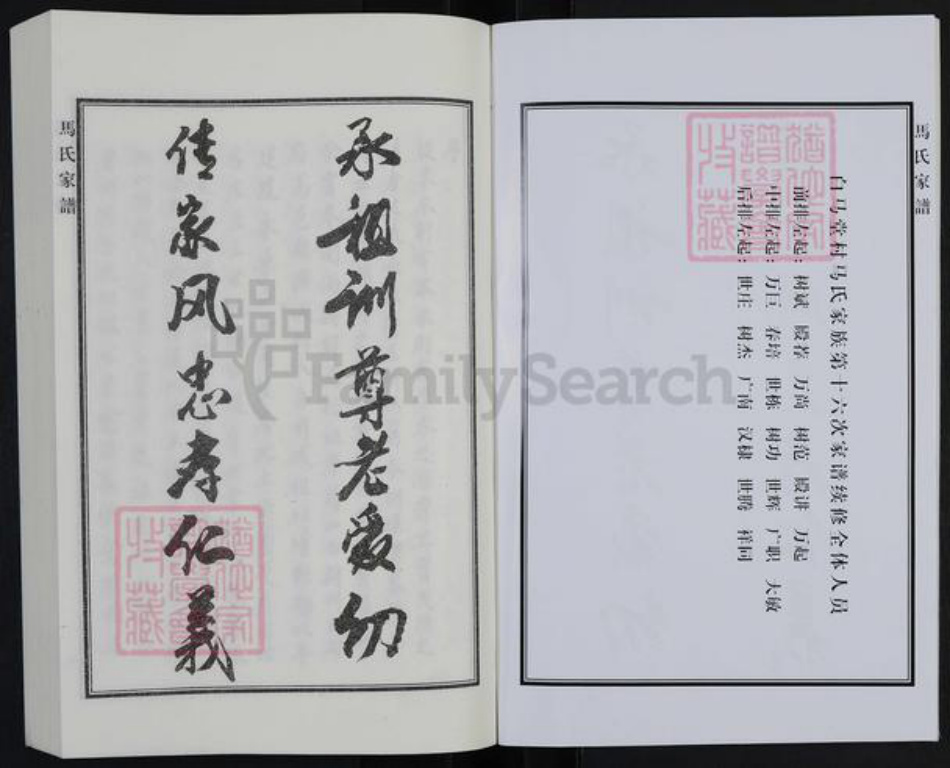 馬氏家譜
白马堂村马氏家族第十六次家谱续修全体人员
前排左起：树斌 殿荐 万尚 树范 殿讲 万起
中排左起：万巨 春培 世栋 树功 世辉 广职 大敏
后排左起：世庄 树杰 广南 汉棣 世腾 祥同
承祖训尊老爱幼
传家风忠孝仁义
馬氏家譜
FamilySearch